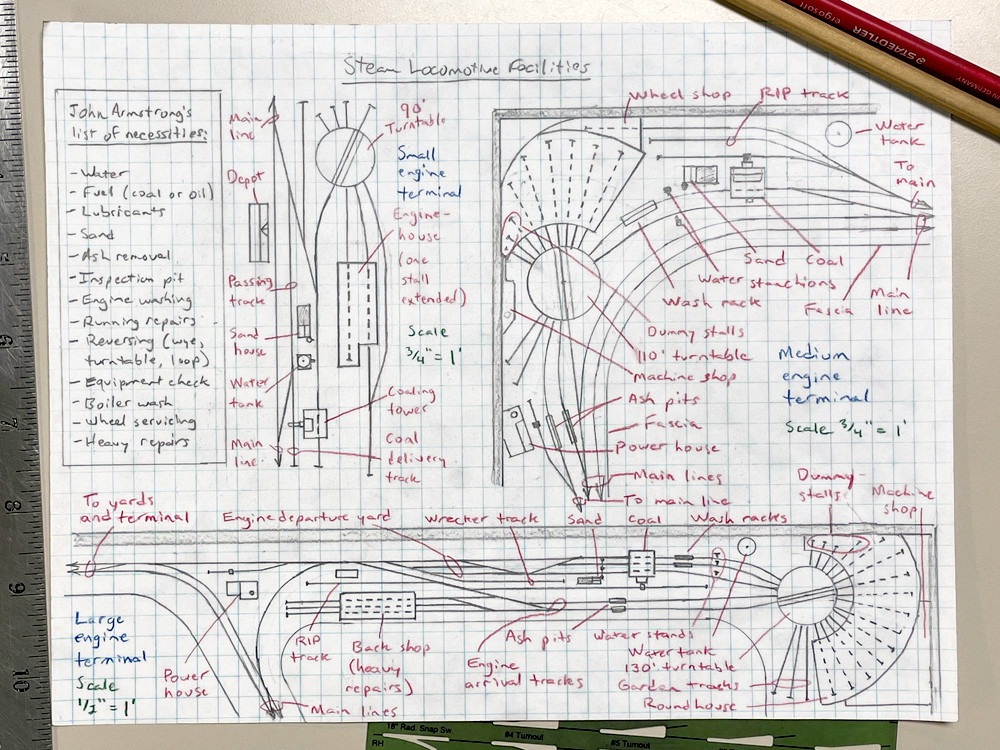 Steam Locomotive Facilities
John Armstrong's
list of necessities:
- Water
- Fuel (coal or oil)
- Lubricants
- Sand
- Ash removal
- Inspection pit
- Engine washing
- Running repairs
- Reversing (wye,
turntable, loop)
- Equipment check
- Boiler wash
- Wheel servicing
- Heavy repairs
Main
line
Depot
Passing
track
Sand
house
Water
tank
Main
line
90'
Turntable
Small
engine
terminal
Engine-
house
(one
stall
extended)
Scale
3/4" = 1'
Coaling
tower
Coal
delivery
track
Wheel shop
RIP track
Water
tank
To
main
Sand
Coal
Water stanchions
Wash rack
Fascia
Main
line
Dummy stalls
110' turntable
Machine shop
Medium
engine
terminal
Scale 3/4" = 1'
Ash pits
Fascia
Power house
Main lines
To main line
To yards
and terminal
Engine departure yard
Wrecker track
Sand
Coal
Wash racks
Dummy
stalls
Machine
shop
Large
engine
terminal
Scale
1/2" = 1'
Power
house
RIP
track
Back shop
(heavy
repairs)
Main lines
Ash pits
Engine
arrival tracks
Water stands
Water tank
130' turntable
Garden tracks
Roundhouse
STAEDTLER
ergosoft
GERMANY
18" Rad. Snap Sw
#4 Turnout
#5 Turnout
RH
7
8
9
10